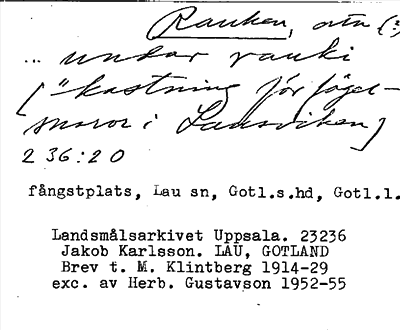 Rauken, ortn (?)
... undar rauki
["kastning för fågel-
snaror i Lausviken]
236:20
fångstplats, Lau sn, Gotl.s.hd, Gotl.l.
Landsmålsarkivet Uppsala. 23236
Jakob Karlsson. LAU, GOTLAND
Brev t. M. Klintberg 1914-29
exc. av Herb. Gustavson 1952-55